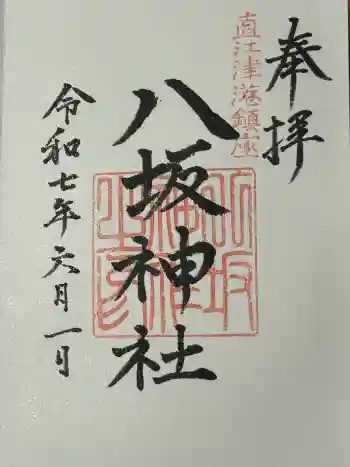 奉拝
直江津游鎮座
八坂神社
令和七年六月一日